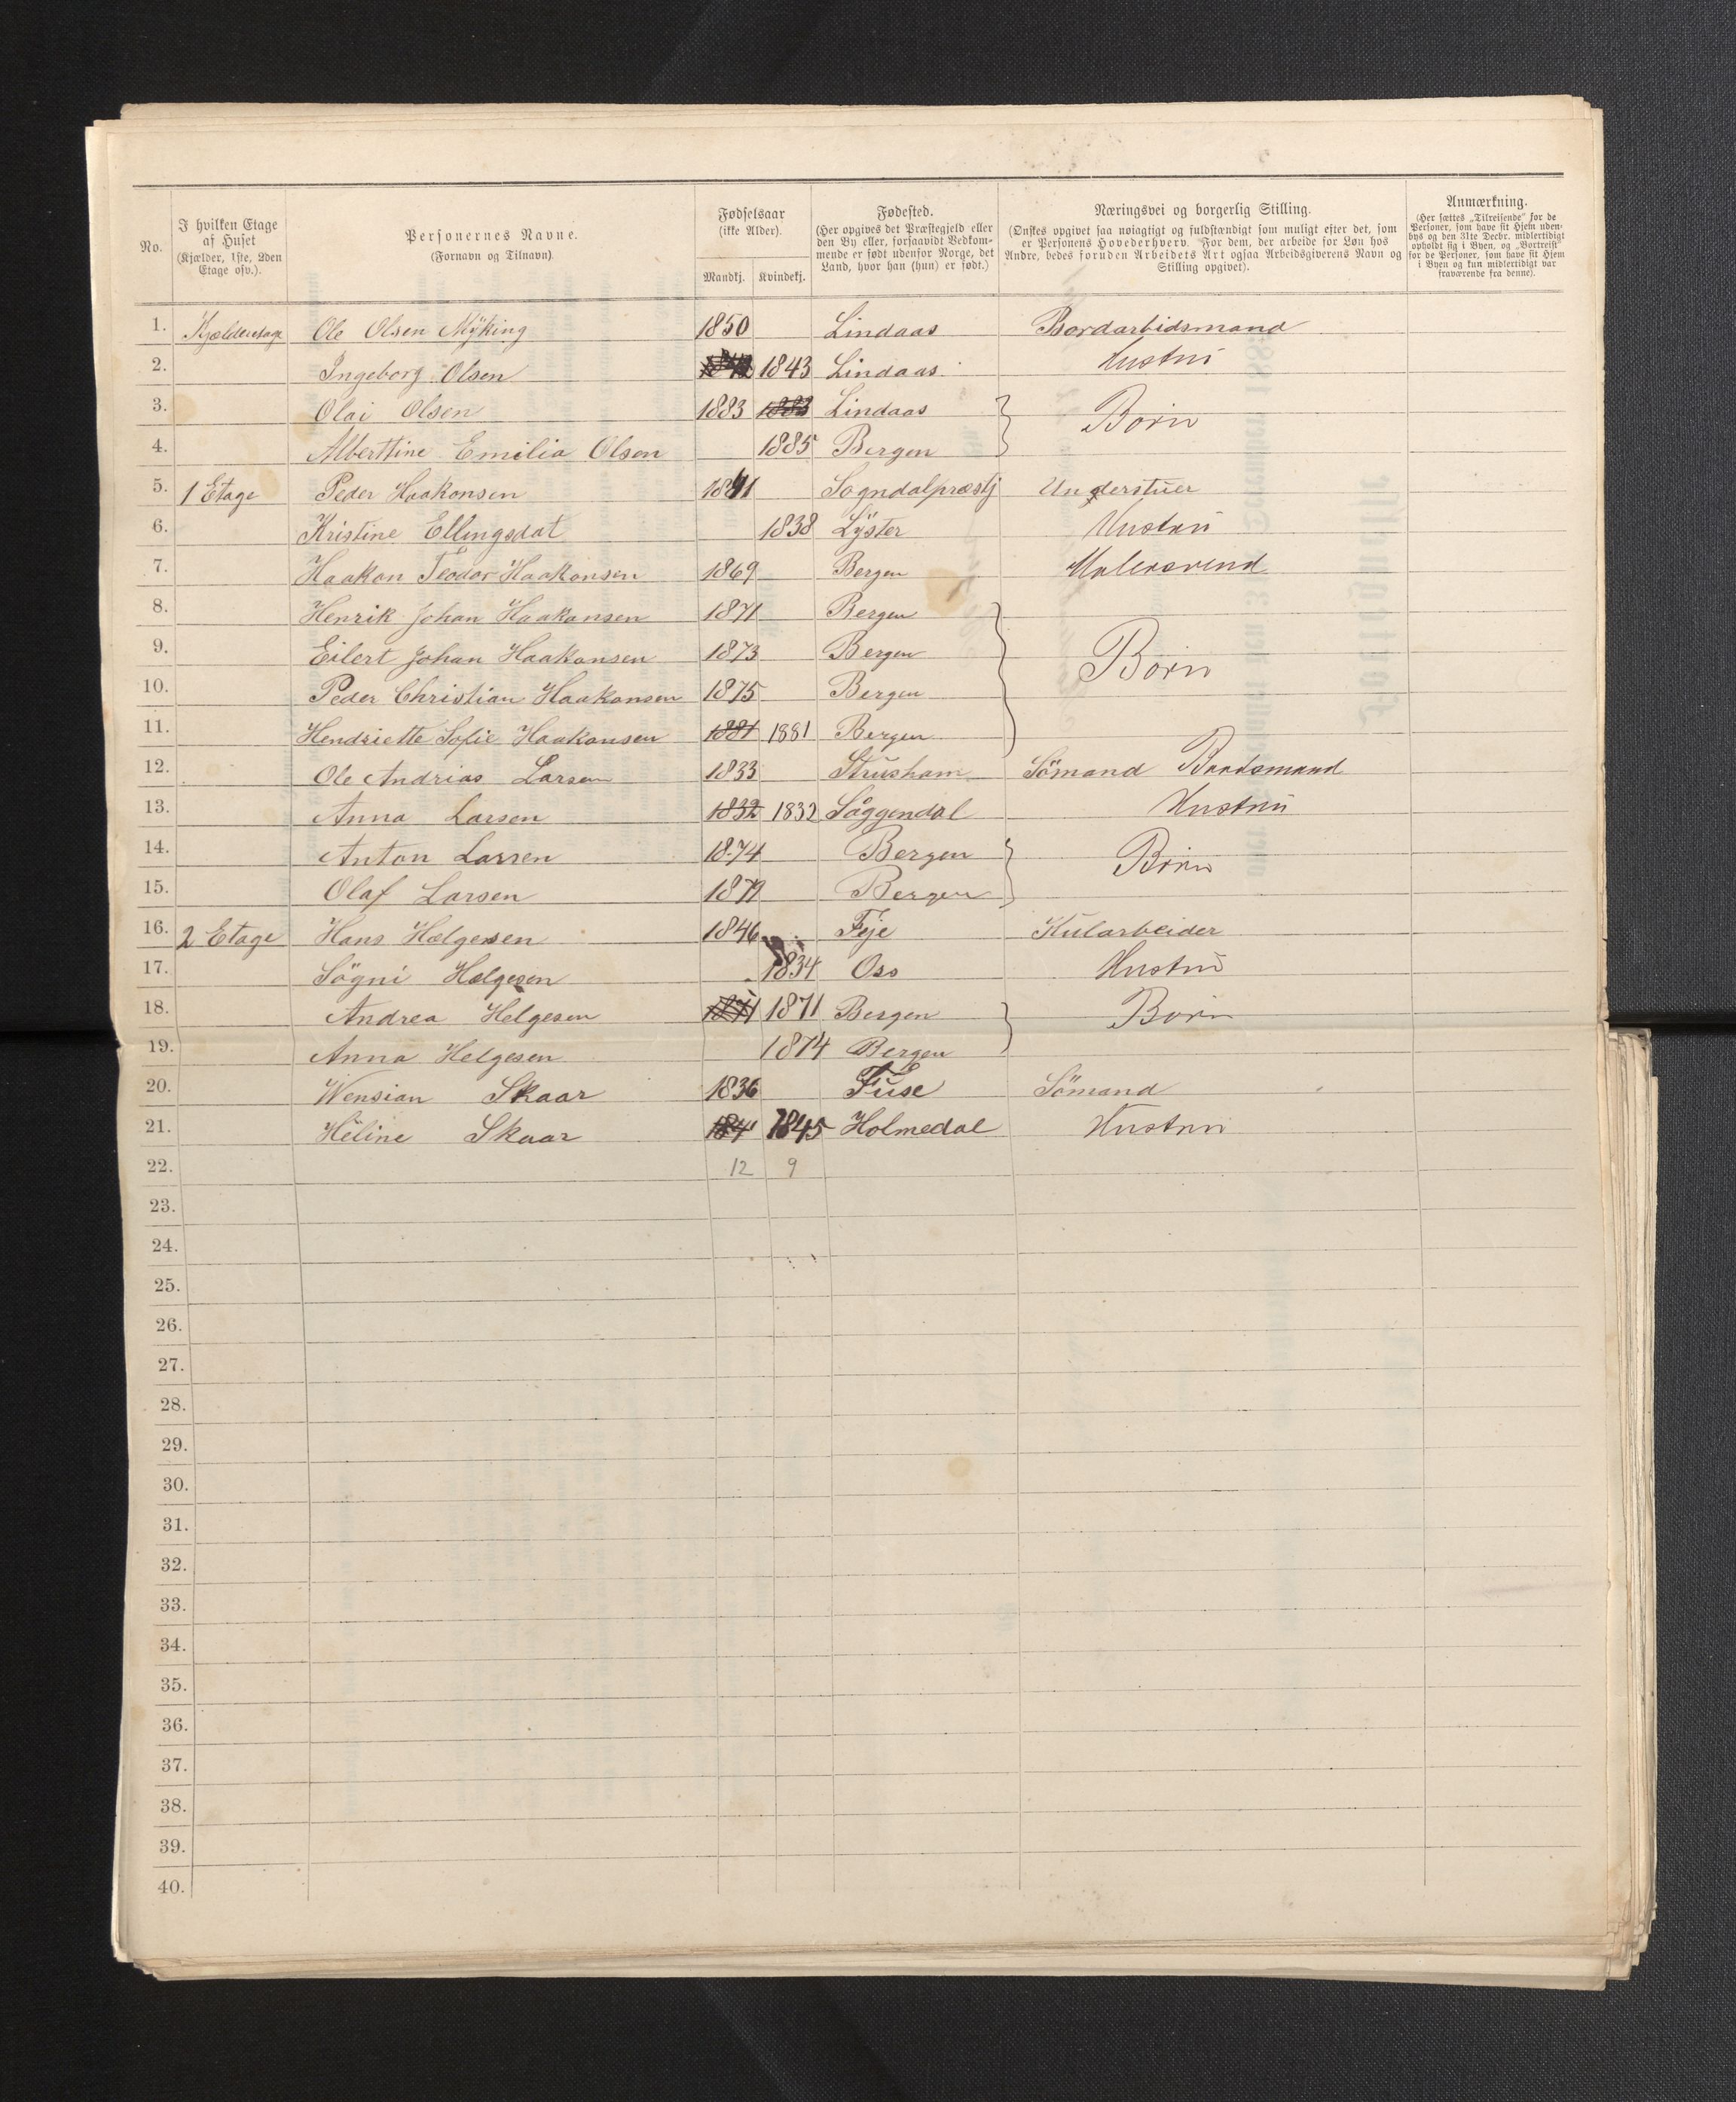 No. I hvilken Etage af Huset (Kjælder, 1ste, 2den Etage osv.). Personernes Navne. (Fornavn og Tilnavn). Fødselsaar (ikke Alder). Mandkj. Kvindekj. Fødested. (Her opgives det Præstegjeld eller den By eller, forsaavidt Vedkommende er født udenfor Norge, det Land, hvor han (hun) er født.) Næringsvei og borgerlig Stilling. (Ønskes opgivet saa nøiagtigt og fuldstændigt som muligt efter det, som er Personens Hovederhverv. For dem, der arbeide for Løn hos Andre, bedes foruden Arbeidets Art ogsaa Arbeidsgiverens Navn og Stilling opgivet). Anmærkning. (Her sættes „Tilreisende" for de Personer, som have sit Hjem udenbys og den 31te Decbr. midlertidigt opholdt sig i Byen, og „Bortreist" for de Personer, som have sit Hjem i Byen og kun midlertidigt var fraværende fra denne).
1. Kjælderetage Ole Olsen Mÿking 1850 Lindaas Bordarbidsmand
2. Ingeborg Olsen 1843 Lindaas Hustru
3. Olai Olsen 1883 1883 Lindaas } Børn
4. Alberttine Emilia Olsen 1885 Bergen
5. 1 Etage Peder Haakonsen 1841 Sogndalpræstj Understuer
6. Kristine Ellingsdat 1838 Lÿster Hustru
7. Haakon Teodor Haakonsen 1869 Bergen Malersvend
8. Henrik Johan Haakonsen 1871 Bergen } Børn
9. Eilert Johan Haakonsen 1873 Bergen
10. Peder Christian Haakonsen 1875 Bergen
11. Hendriette Sofie Haakonsen 1881 1881 Bergen
12. Ole Andrias Larsen 1833 Strusham Sömand Baadsmand
13. Anna Larsen 1832 1832 Såggendal Hustru
14. Anton Larsen 1874 Bergen } Børn
15. Olaf Larsen 1879 Bergen
16. 2 Etage Hans Hælgesen 1846 Feje Kularbeider
17. Sögni Hælgesen 1834 Oss Hustru
18. Andrea Helgesen 1871 1871 Bergen } Børn
19. Anna Helgesen 1874 Bergen
20. Wensian Skaar 1836 Fuse Sömand
21. Héline Skaar 184 1845 Holmedal Hustru
22. 12 9
23.
24.
25.
26.
27.
28.
29.
30.
31.
32.
33.
34.
35.
36.
37.
38.
39.
40.